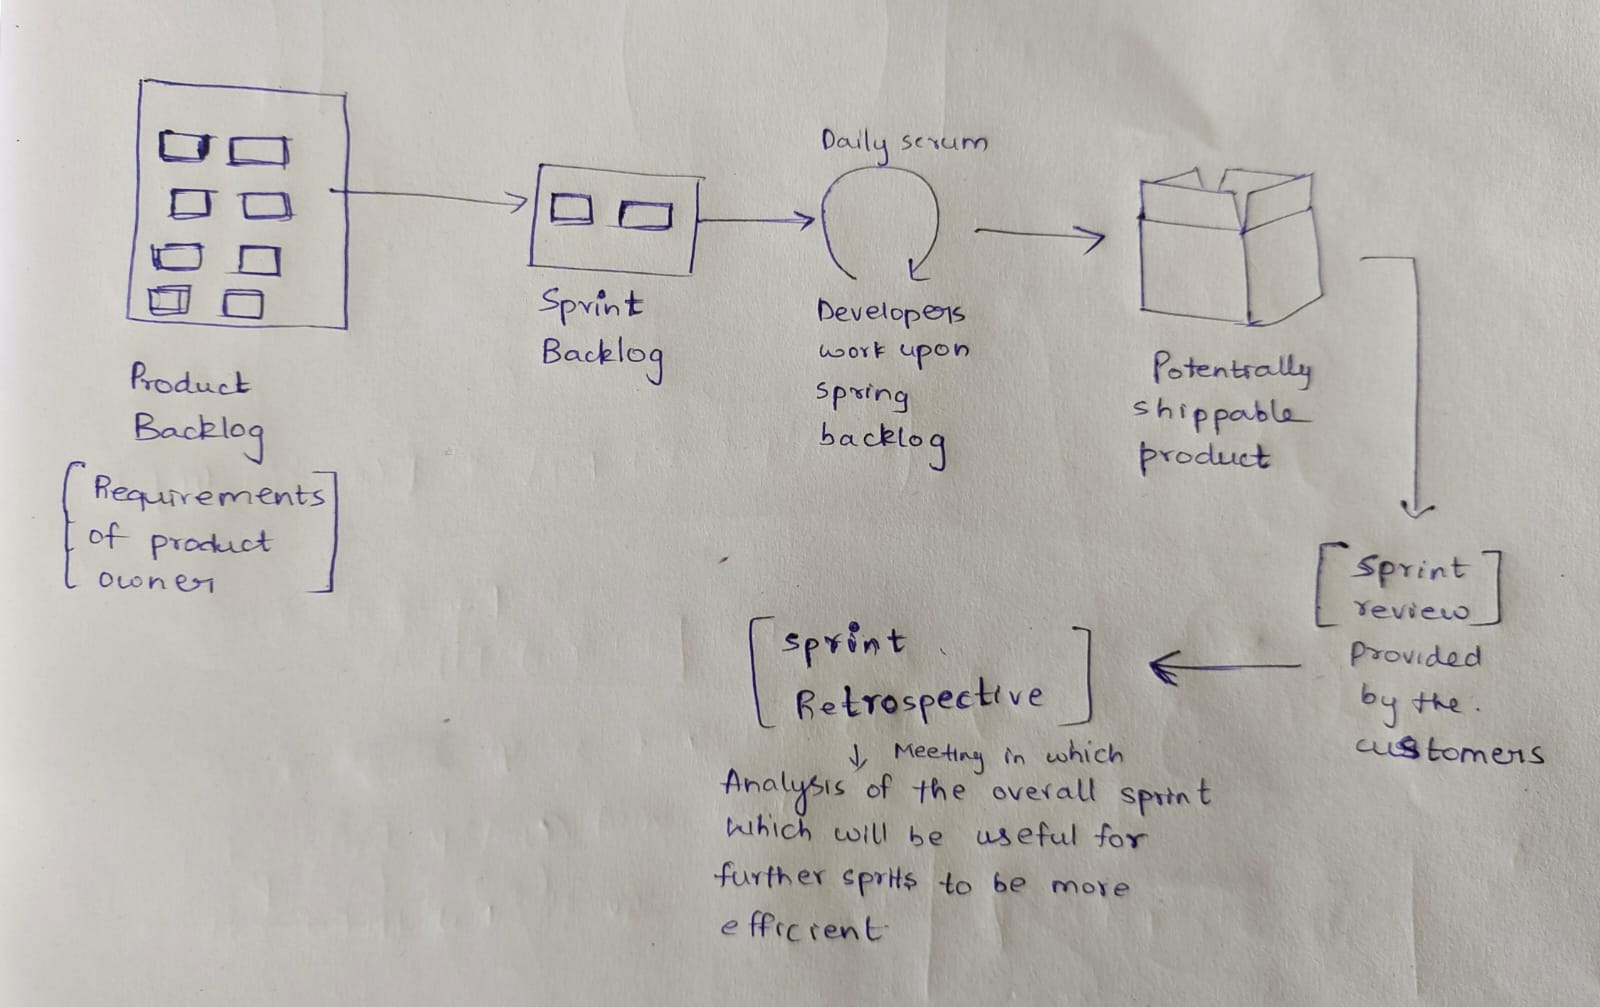 Product
Backlog
Requirements
of product
owner
Sprint
Backlog
Daily scrum
Developers
work upon
spring
backlog
Potentially
shippable
product
Sprint
review
Provided
by the.
customers
Sprint
Retrospective
Meeting in which
Analysis of the overall sprint
which will be useful for
further sprits to be more
efficient